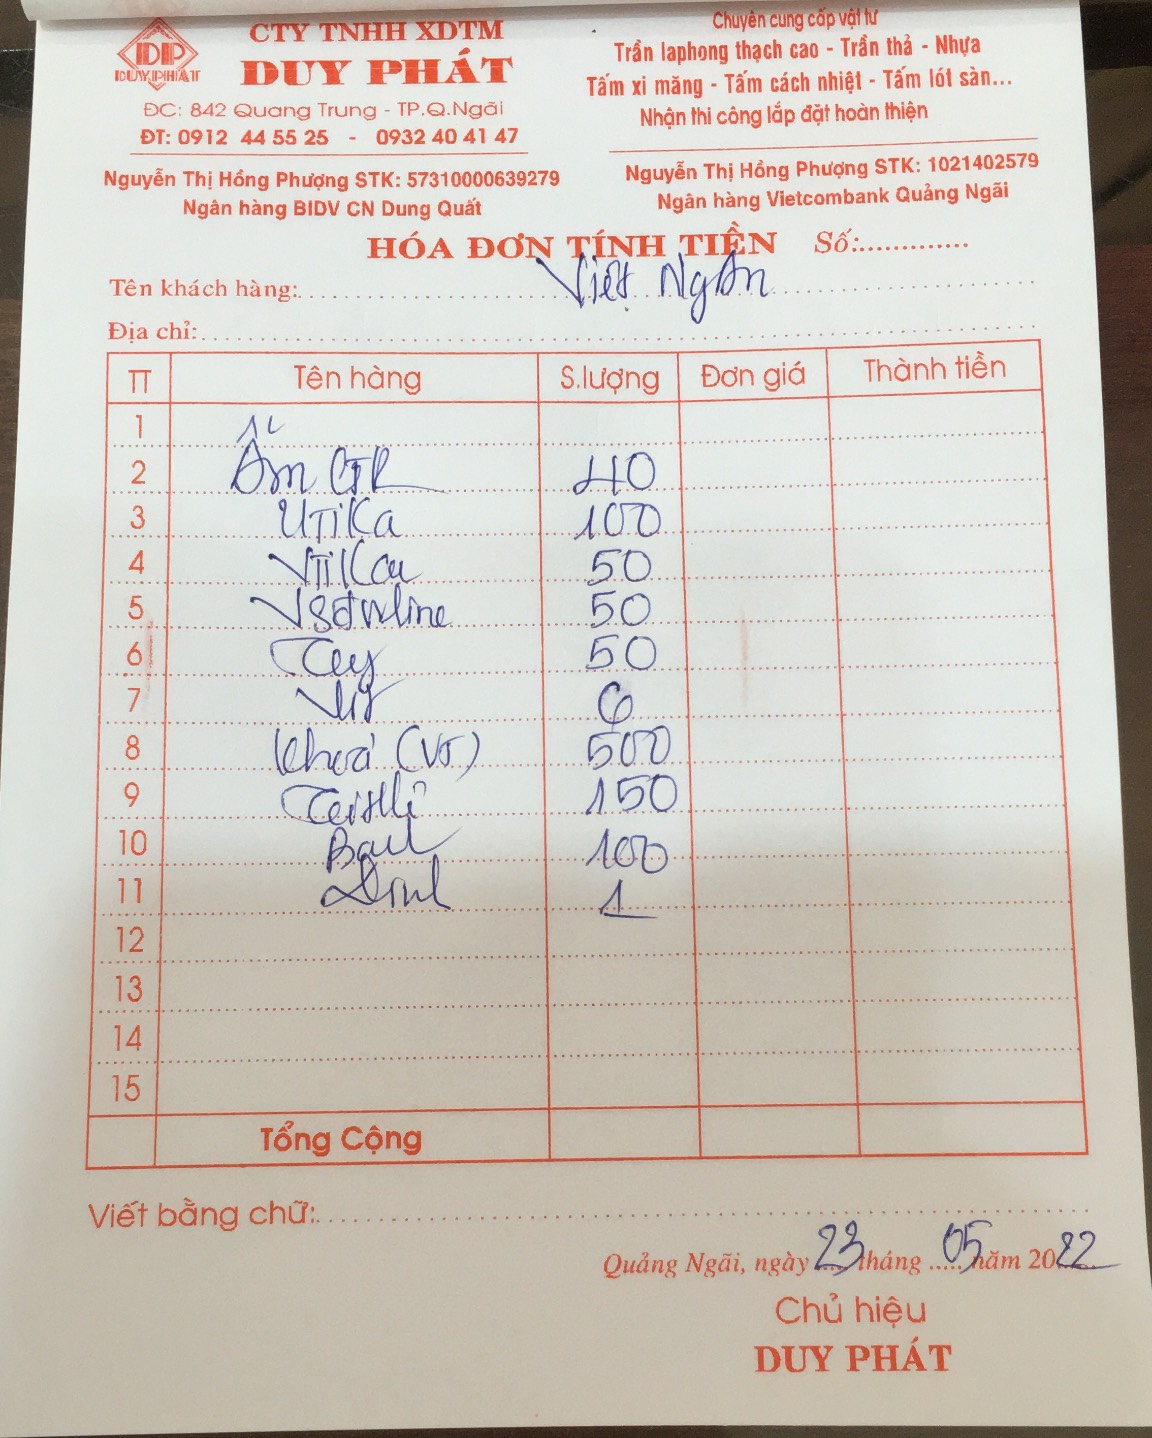 DP
DUY PHÁT
CTY TNHH XDTM
DUY PHÁT
ĐC: 842 Quang Trung - TP.Q.Ngãi
ĐT: 0912 44 55 25 - 0932 40 41 47
Nguyễn Thị Hồng Phượng STK: 57310000639279
Ngân hàng BIDV CN Dung Quất
Chuyên cung cấp vật tư
Trần laphong thạch cao - Trần thả - Nhựa
Tấm xi măng - Tấm cách nhiệt - Tấm lót sàn...
Nhận thi công lắp đặt hoàn thiện
Nguyễn Thị Hồng Phượng STK: 1021402579
Ngân hàng Vietcombank Quảng Ngãi
HÓA ĐƠN TÍNH TIỀN Số:.............
Tên khách hàng: Việt Ngân
Địa chỉ:
TT Tên hàng S.lượng Đơn giá Thành tiền
1
2 Ấm 40
3 UTiKa 100
4 VTiKa 50
5 50
6 50
7 6
8 khoá (VT) 500
9 150
10 100
11 1
12
13
14
15
Tổng Cộng
Viết bằng chữ:
Quảng Ngãi, ngày 23 tháng 05 năm 2022
Chủ hiệu
DUY PHÁT